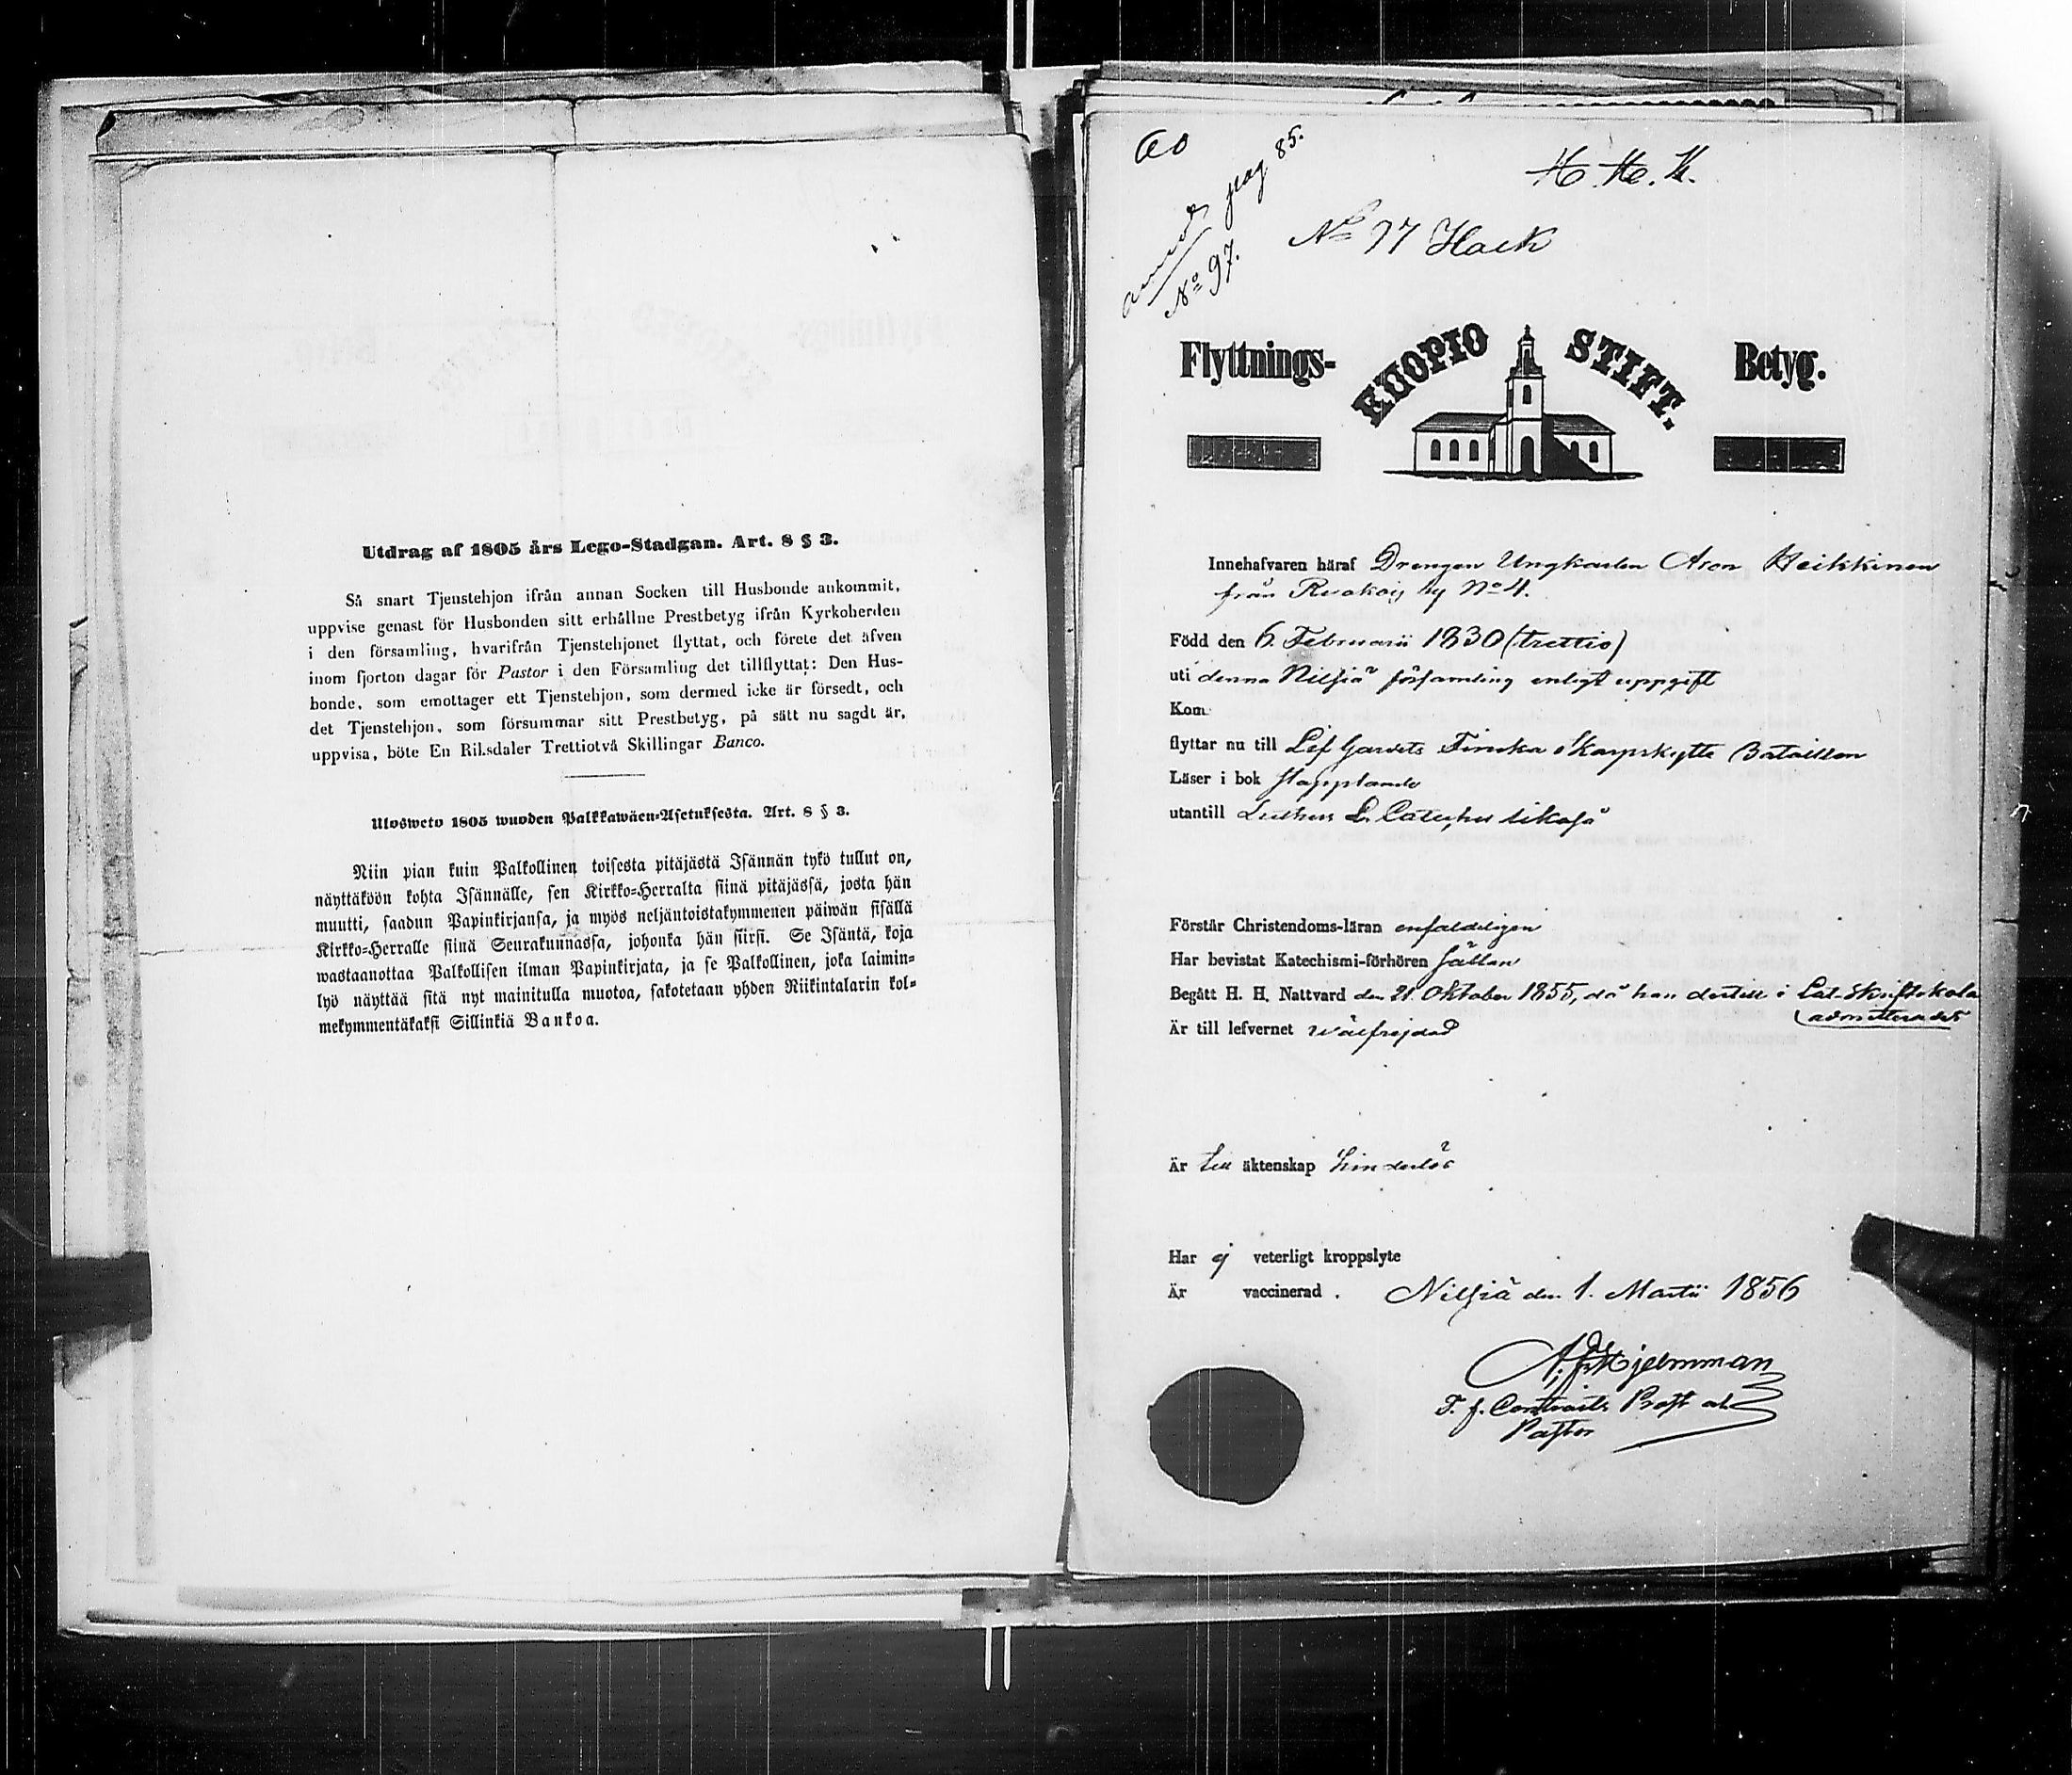 Utdrag af 1805 års Lego-Stadgan. Art. 8 § 3.
Så snart Tjenstehjon ifrån annan Socken till Husbonde ankommit,
uppvise genast för Husbonden sitt erhållne Prestbetyg ifrån Kyrkoherden
i den församling, hvarifrån Tjenstehjonet flyttat, och förete det äfven
inom fjorton dagar för Pastor i den Församling det tillflyttat: Den Hus-
bonde, som emottager ett Tjenstehjon, som dermed icke är försedt, och
det Tjenstehjon, som försummar sitt Prestbetyg, på sätt nu sagdt är,
uppvisa, böte En Riksdaler Trettiotvå Skillingar Banco.
Ulosweto 1805 wuoden Palkkawäen-Asetuksesta. Art. 8 § 3.
Niin pian kuin Palkollinen toisesta pitäjästä Isännän tykö tullut on,
näyttäköön kohta Isännälle, sen Kirkko-Herralta siinä pitäjässä, josta hän
muutti, saadun Papinkirjansa, ja myös neljäntoistakymmenen päiwän sisällä
Kirkko-Herralle siinä Seurakunnassa, johonka hän siirsi. Se Isäntä, koja
wastaanottaa Palkollisen ilman Papinkirjata, ja se Palkollinen, joka laimin-
lyö näyttää sitä nyt mainitulla muotoa, sakotetaan yhden Riikintalarin kol-
mekymmentäkaksi Sillinkiä Bankoa.
60
pag 85.
No 97.
No 97 Hack
Flyttnings- KUOPIO STIFT. Betyg.
Innehafvaren häraf Drengen Ungkarlen Aron Heikkinen
från by No 4.
Född den 6. Februarii 1830 (trettio)
uti denna Nilsiä församling enligt uppgift
Kom
flyttar nu till Lif Gardets Finska Skarpskytte Bataillon
Läser i bok stapplande
utantill Luthers L. Cateches likaså
Förstår Christendoms-läran enfaldeligen
Har bevistat Katechismi-förhören sällan
Begått H. H. Nattvard den 21 Oktober 1855, då han dertill i Skriftskola
admitterades
Är till lefvernet wälfrejdad
Är till äktenskap hinderlös
Har ej veterligt kroppslyte
Är vaccinerad. Nilsiä den 1. Martii 1856
Hjelmman
T. f. Contracts Prost
Pastor